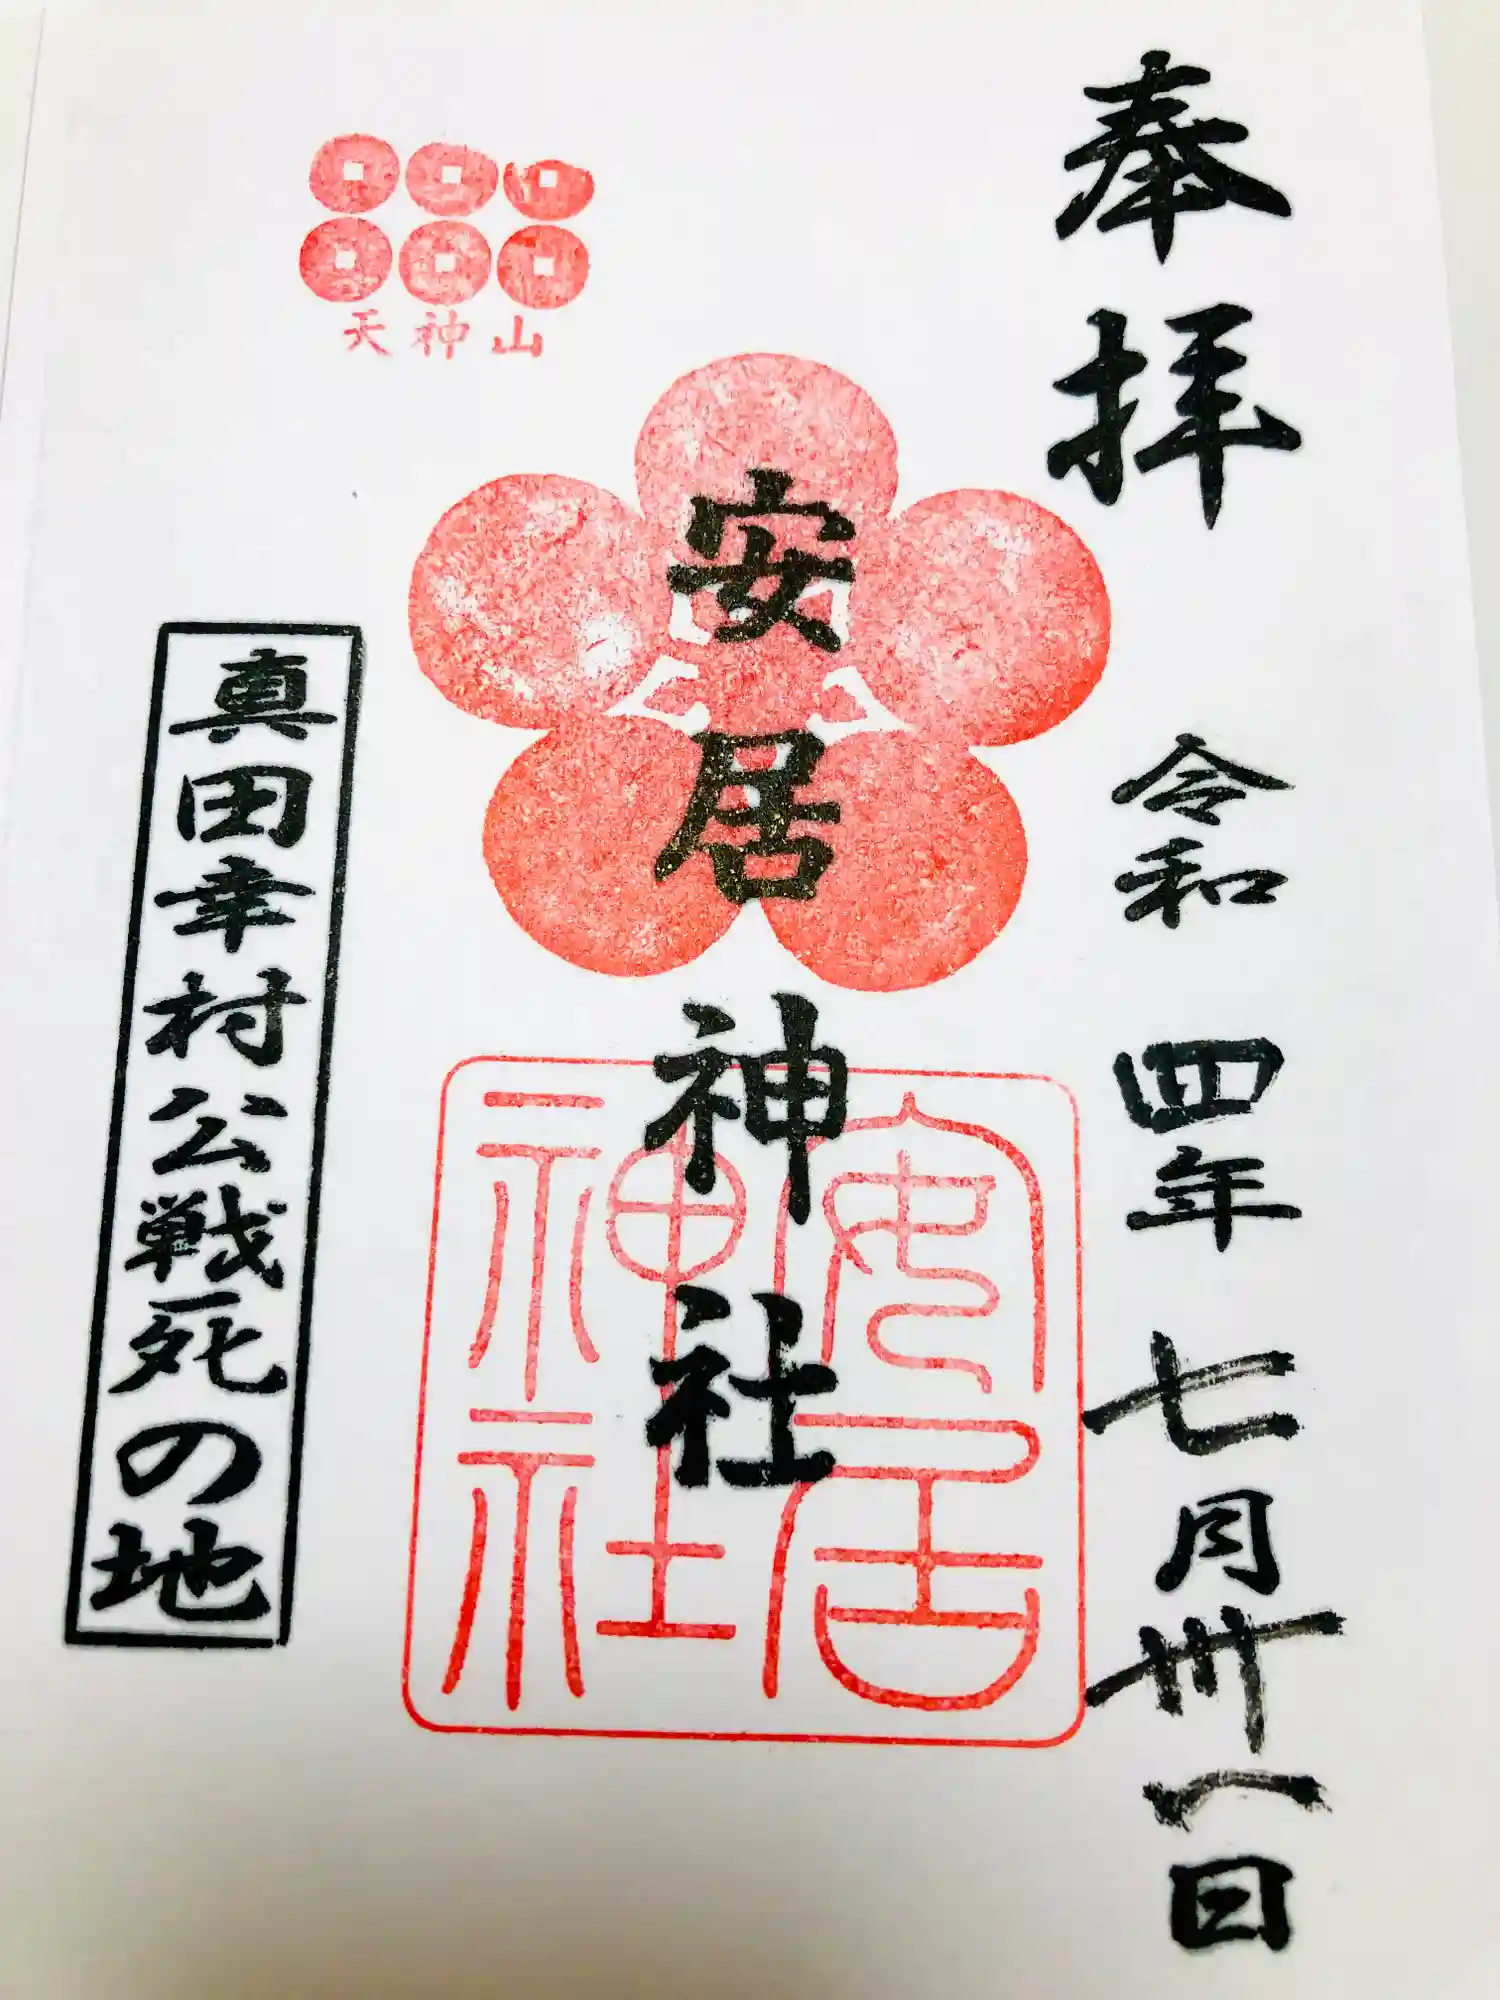 奉拝
令和四年七月卅一日
安居神社
安居神社
天神山
真田幸村公戦死の地